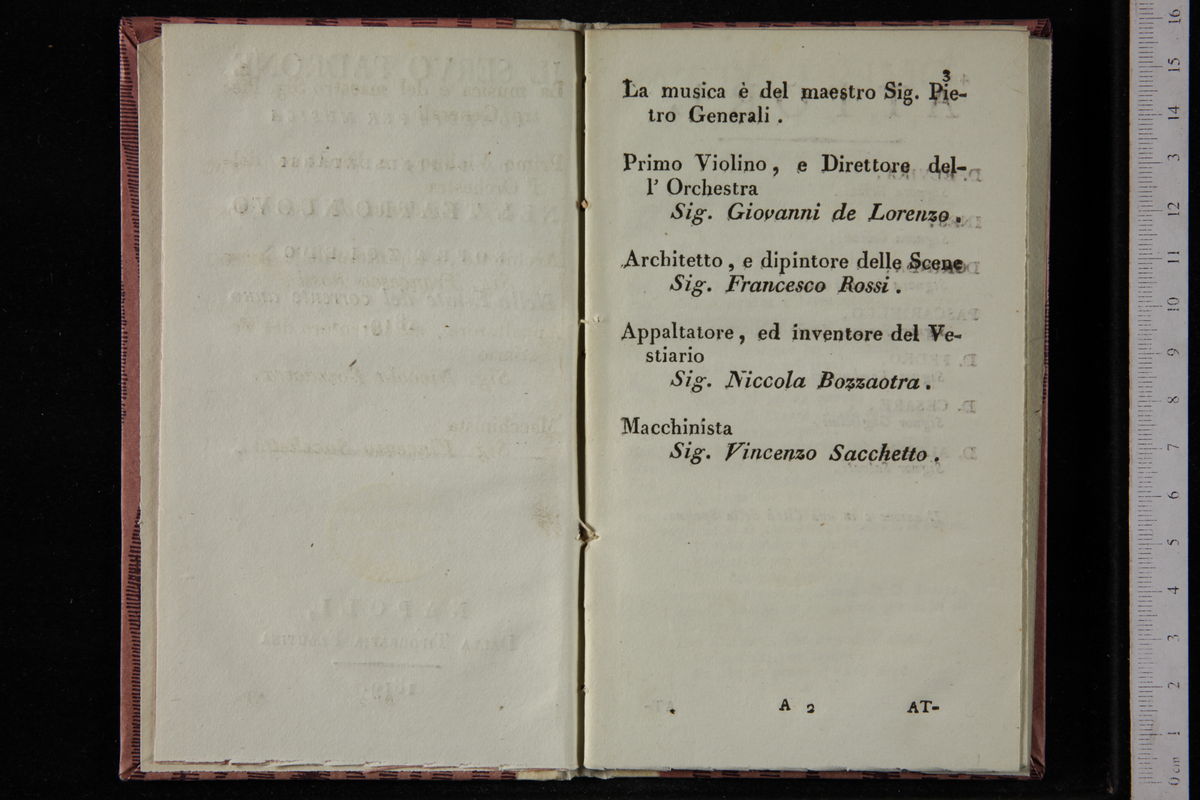 3
La musica è del maestro Sig. Pie-
tro Generali .
Primo Violino , e Direttore del-
l' Orchestra
Sig. Giovanni de Lorenzo .
Architetto , e dipintore delle Scene
Sig. Francesco Rossi .
Appaltatore , ed inventore del Ve-
stiario
Sig. Niccola Bozzaotra .
Macchinista
Sig. Vincenzo Sacchetto .
A 2 AT-
16
15
14
13
12
11
10
9
8
7
6
5
4
3
2
1
0 cm